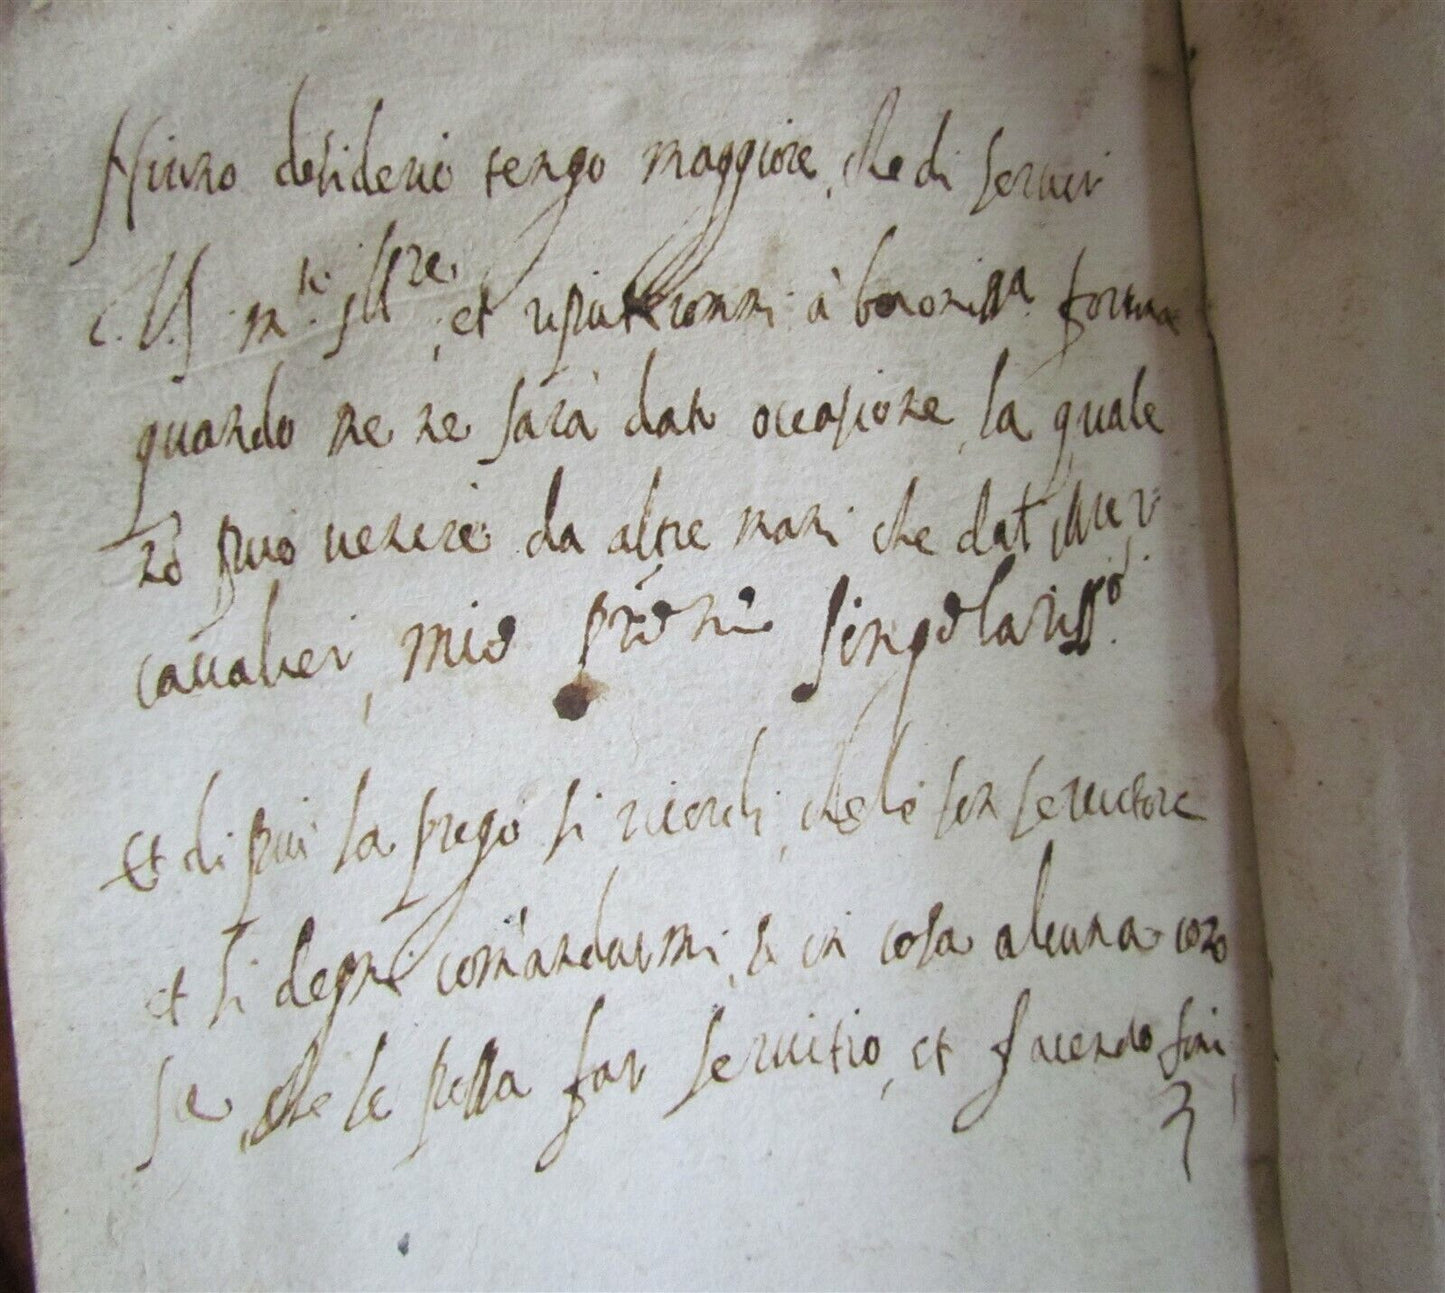 Niuno desiderio tengo maggiore, che di seruir
V.S. m.to Ill.re, et riputerommi à bonoriss.a fortuna
quando me ne sarà data occasione, la quale
nō può uenire da altre mani che dal
caualier, mio prōne singolariss.o
Et di più la prego si ricordi, che le son seruitore
et si degni comandarmi, se in cosa alcuna cono
sce, che le possa far seruitio, et facendo fine